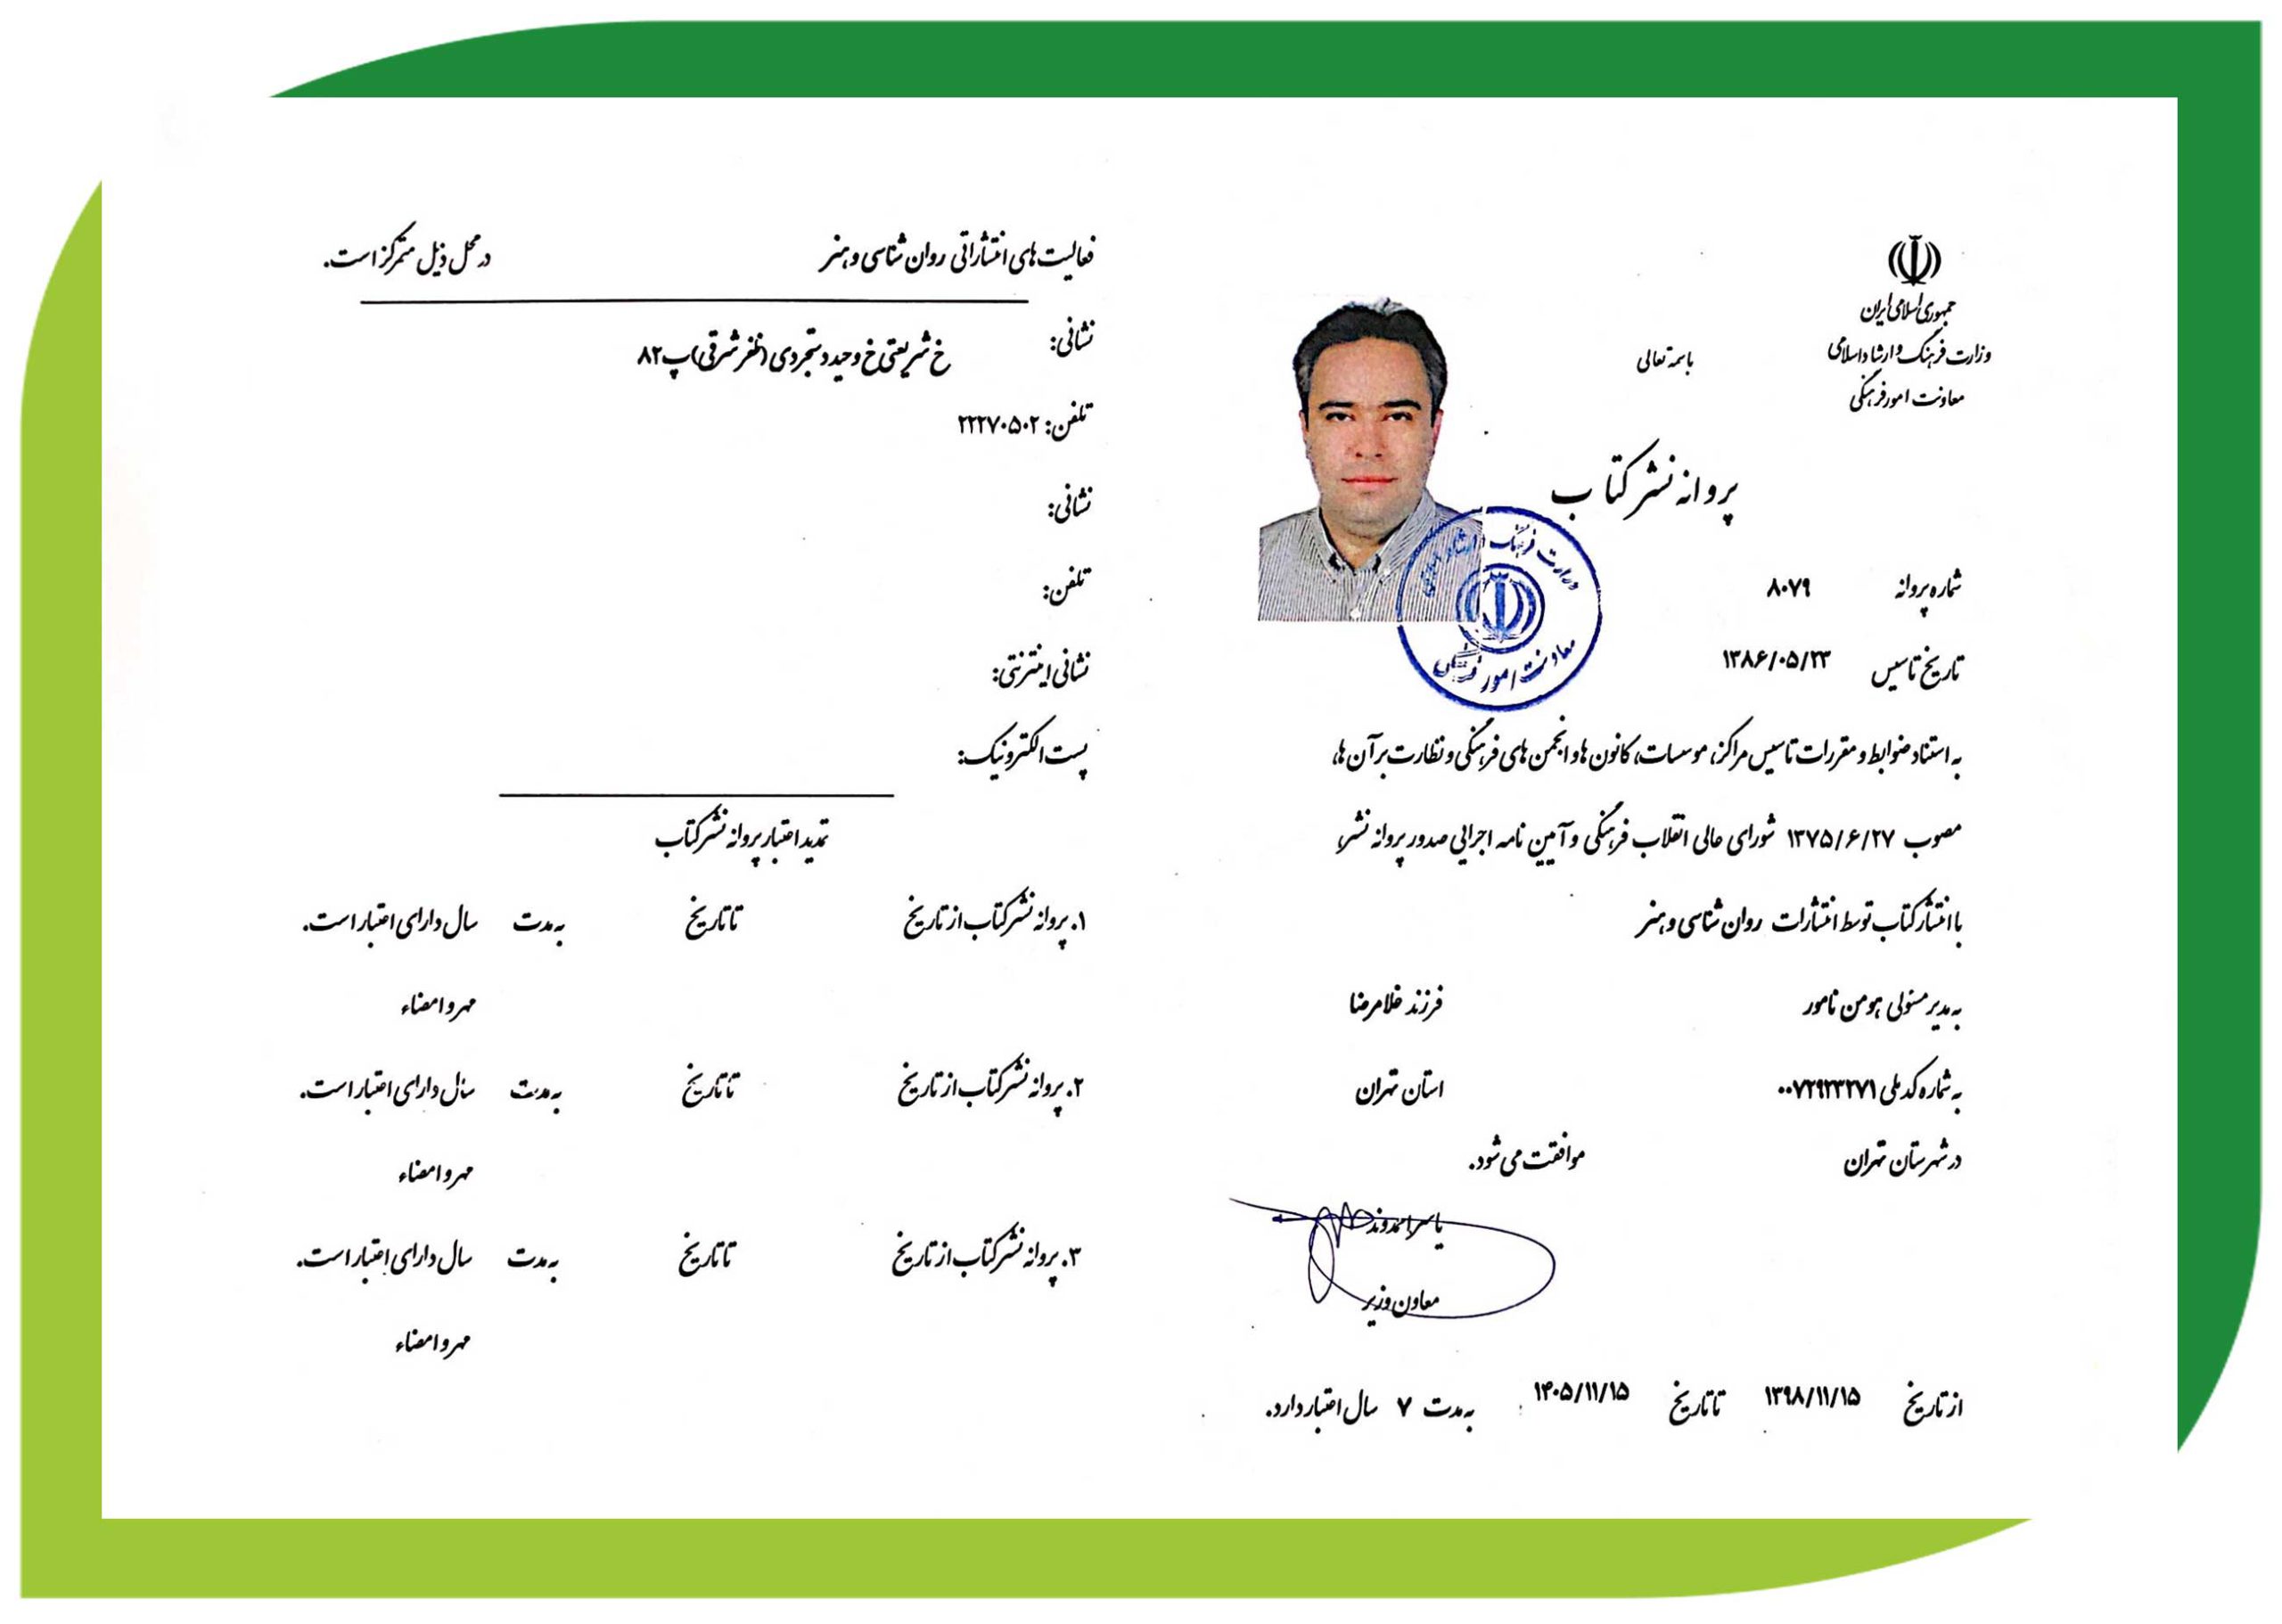 جمهوری اسلامی ایران
وزارت فرهنگ و ارشاد اسلامی
معاونت امور فرهنگی
باسمه تعالی
پروانه نشر کتاب
شماره پروانه ۸۰۷۹
تاریخ تاسیس ۱۳۸۶/۰۵/۲۳
وزارت فرهنگ و ارشاد اسلامی
معاونت امور فرهنگی
به استناد ضوابط و مقررات تاسیس مراکز، موسسات، کانون ها و انجمن های فرهنگی و نظارت بر آن ها،
مصوب ۱۳۷۵/۶/۲۷ شورای عالی انقلاب فرهنگی و آیین نامه اجرایی صدور پروانه نشر،
با انتشار کتاب توسط انتشارات روان شناسی و هنر
به مدیر مسئولی هومن نامور فرزند غلامرضا
به شماره کد ملی ۰۰۷۲۹۲۳۲۷۱ استان تهران
در شهرستان تهران موافقت می شود.
یاسر احمدوند
معاون وزیر
از تاریخ ۱۳۹۸/۱۱/۱۵ تا تاریخ ۱۴۰۵/۱۱/۱۵ به مدت ۷ سال اعتبار دارد.
فعالیت های انتشاراتی روان شناسی و هنر در محل ذیل متمرکز است.
نشانی: خ شریعتی خ وحید دستجردی (ظفر شرقی) پ ۸۲
تلفن: ۲۲۲۷۰۵۰۲
نشانی:
تلفن:
نشانی اینترنتی:
پست الکترونیک:
تمدید اعتبار پروانه نشر کتاب
۱. پروانه نشر کتاب از تاریخ تا تاریخ به مدت سال دارای اعتبار است.
مهر و امضاء
۲. پروانه نشر کتاب از تاریخ تا تاریخ به مدت سال دارای اعتبار است.
مهر و امضاء
۳. پروانه نشر کتاب از تاریخ تا تاریخ به مدت سال دارای اعتبار است.
مهر و امضاء